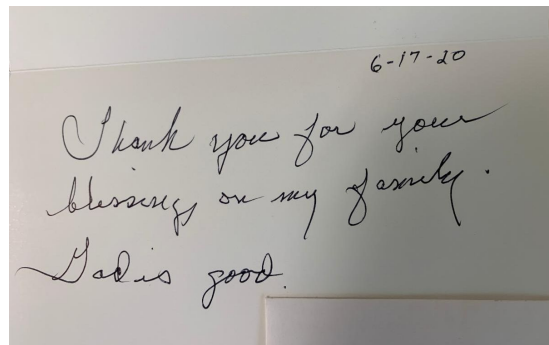 6-17-20
Thank you for your
blessings on my family.
God is good.